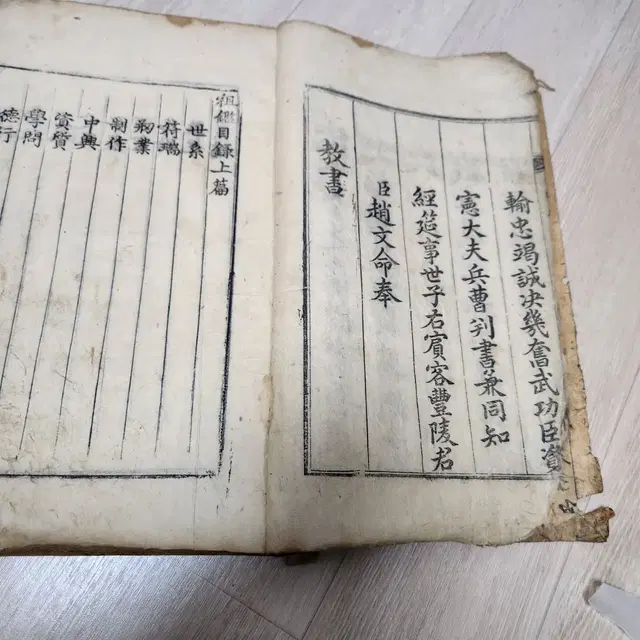 輸忠竭誠決幾奮武功臣資
憲大夫兵曹判書兼同知
經筵事世子右賓客豐陵君
臣趙文命奉
教書
祖鑑目錄上篇
世系
符瑞
剏業
制作
中興
資質
學問
德行